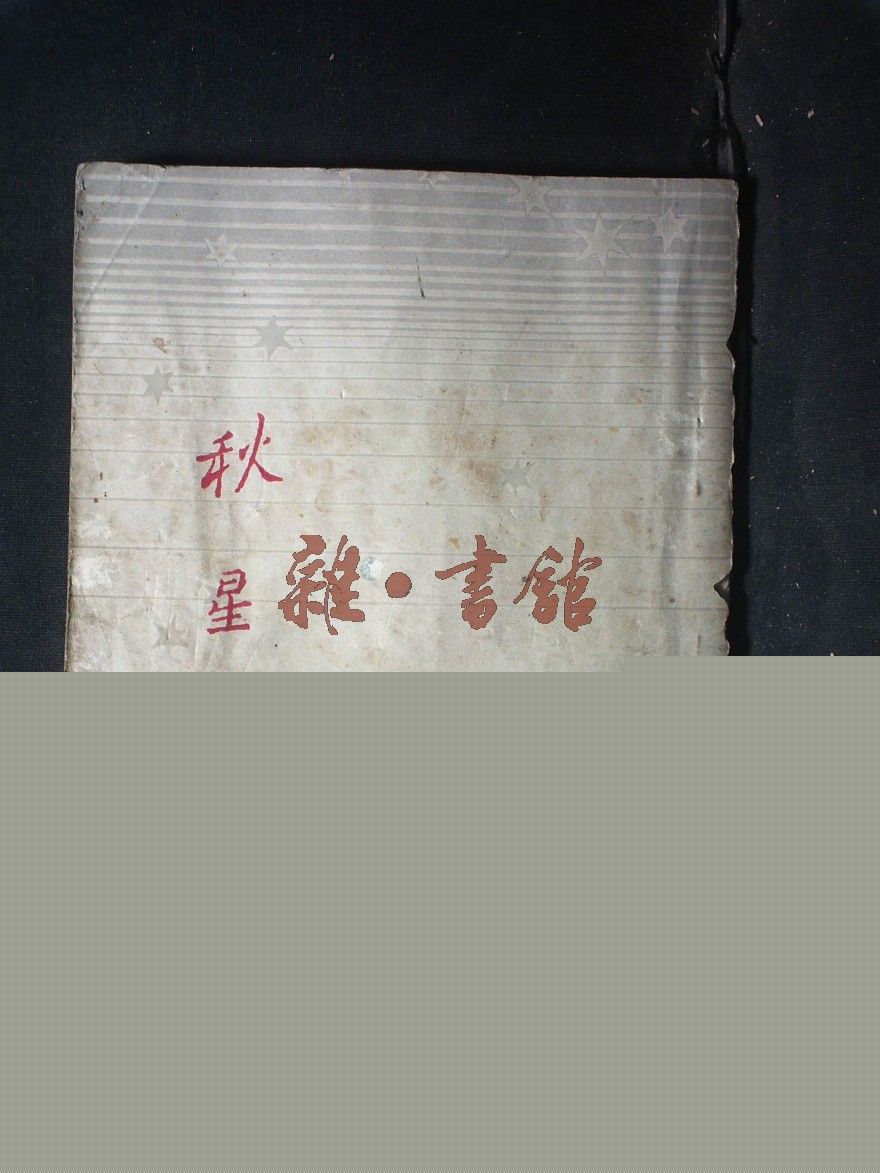 秋星
雜·書館